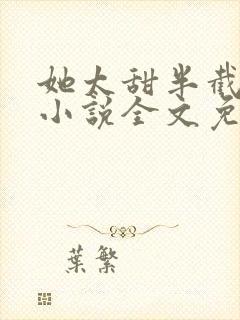 她太甜半截
小說全文免
葉繁